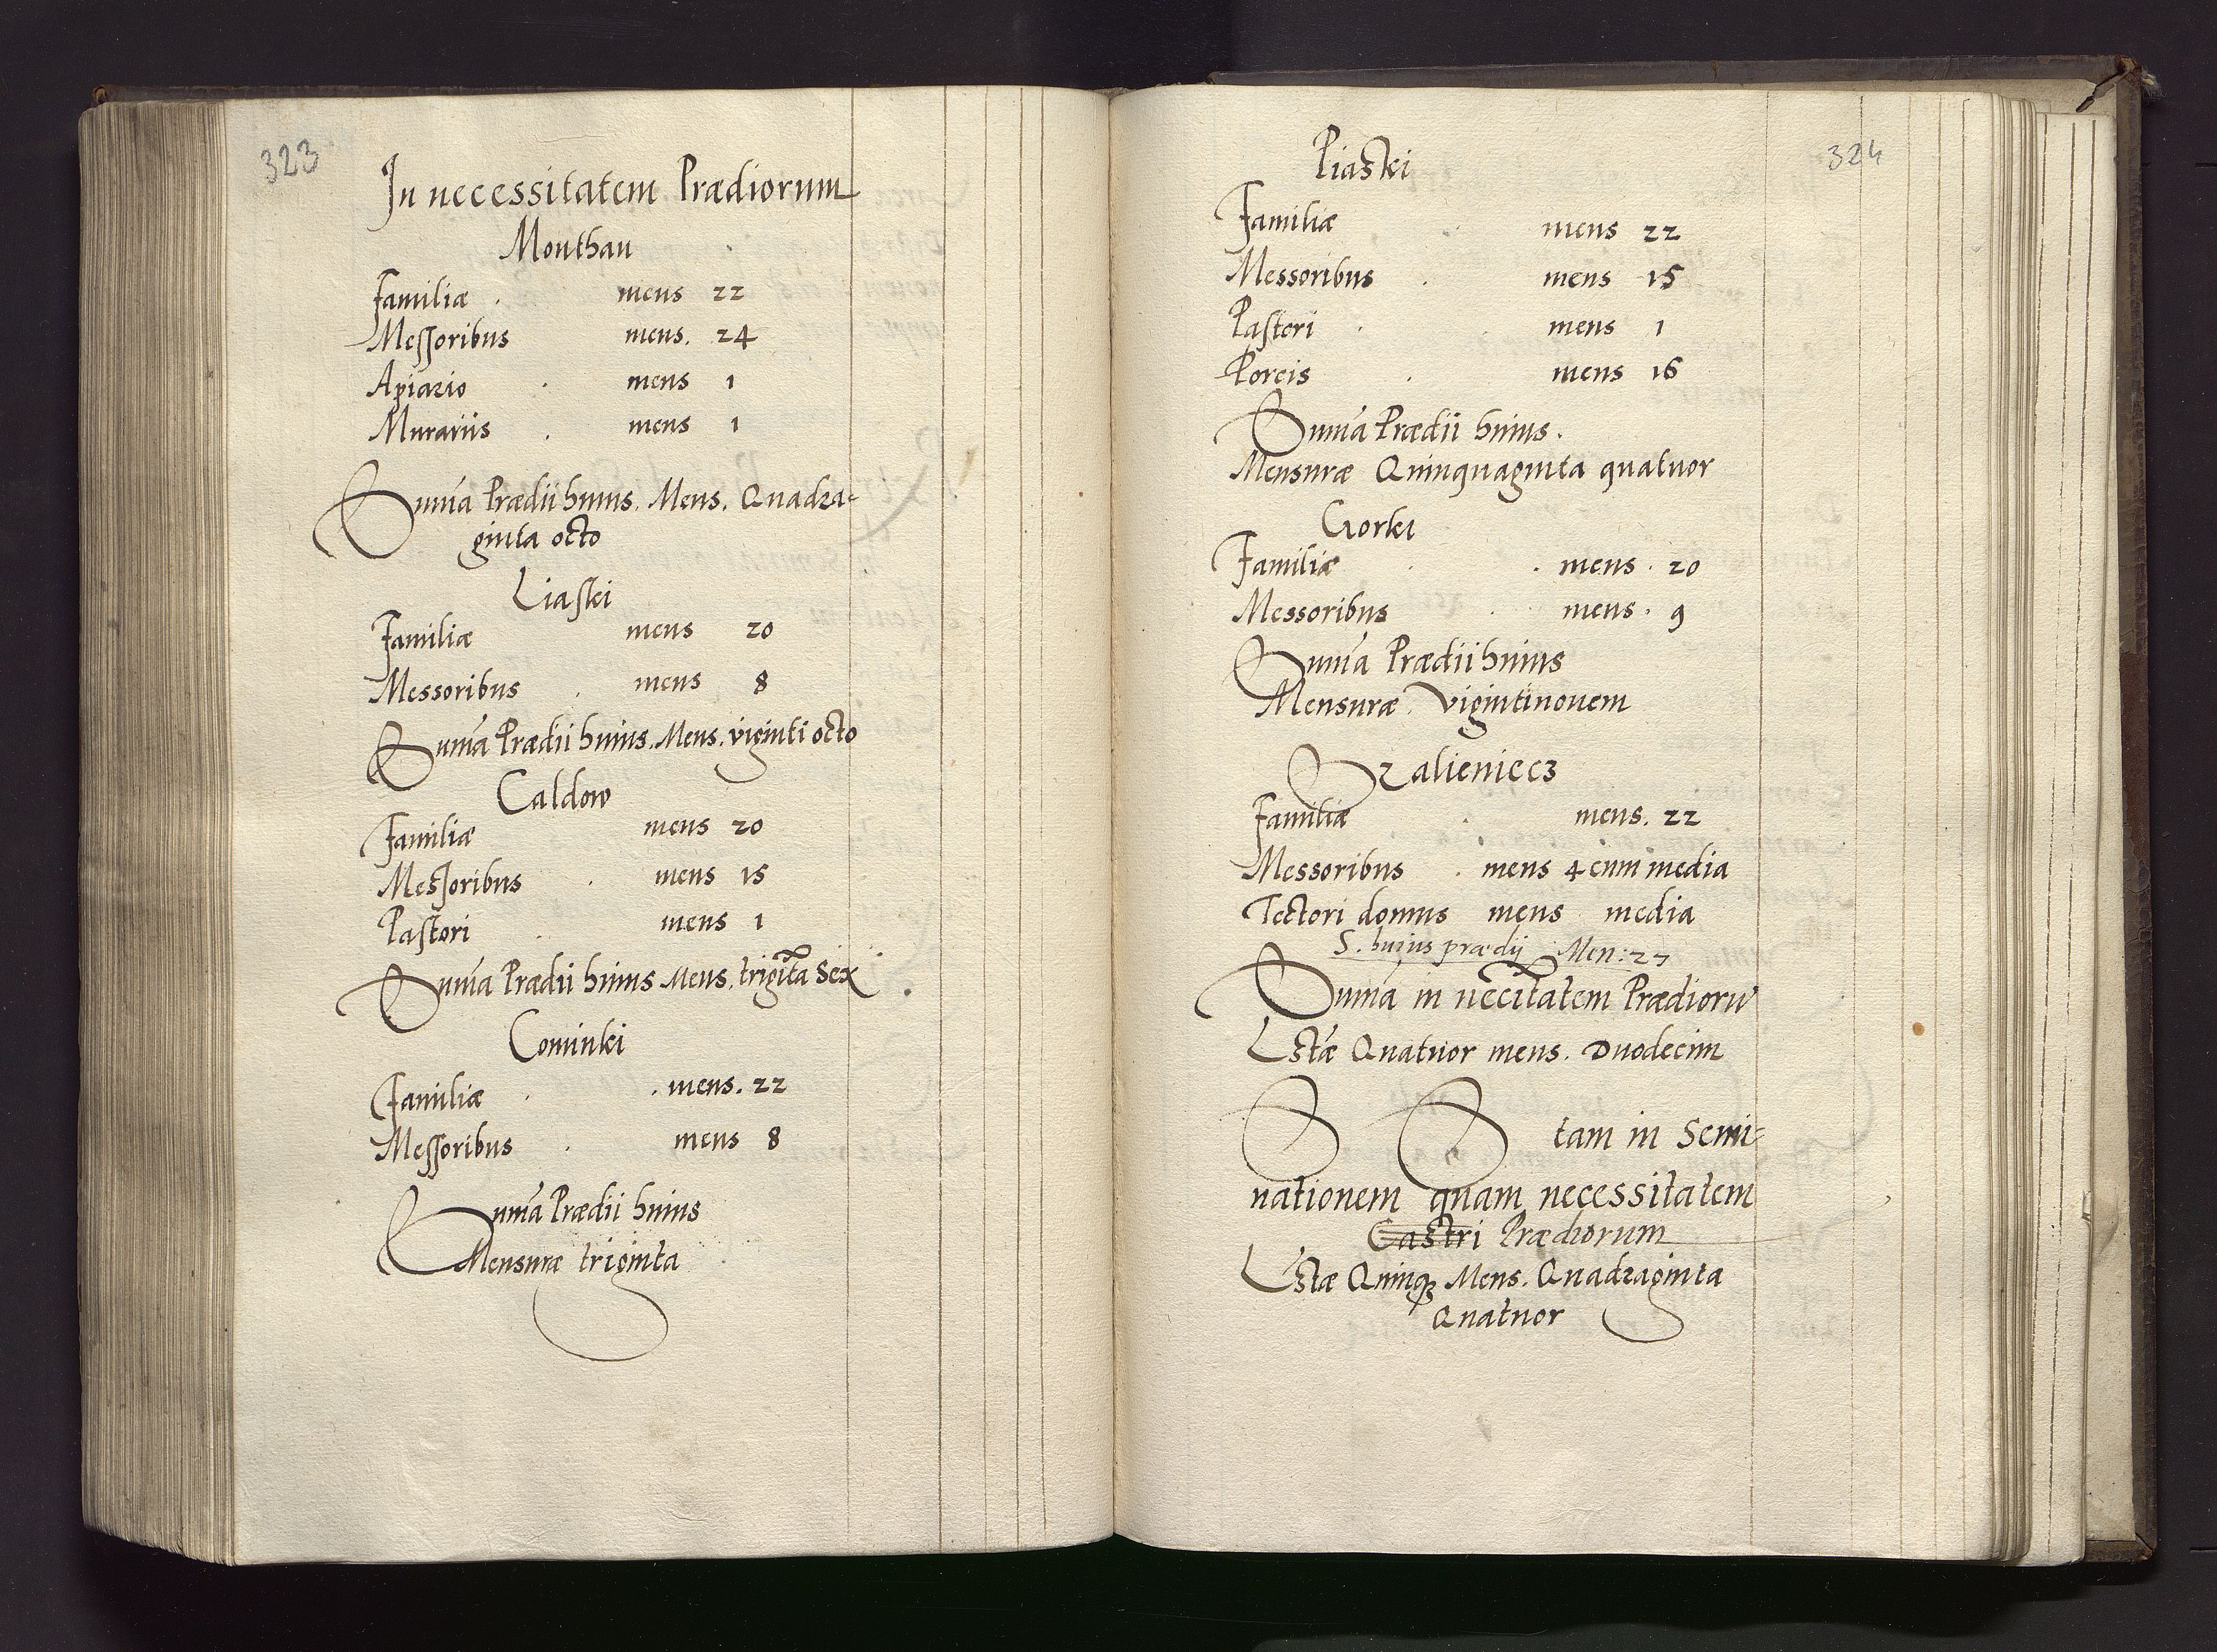 323
In necessitatem Prædiorum
Monthau
Familiæ . mens 22
Messoribus mens. 24
Apiario . mens 1
Murariis . mens 1
Summa Prædii huius. Mens. Quadra-
ginta octo
Liaski
Familiæ mens 20
Messoribus . mens 8
Summa Prædii huius. Mens. viginti octo
Caldow
Familiæ mens 20
Messoribus . mens 15
Pastori . mens 1
Summa Prædii huius Mens. trigīta sex
Cominki
Familiæ . . mens. 22
Messoribus . mens 8
Summa Prædii huius
Mensuræ triginta
324
Piaski
Familiæ . mens 22
Messoribus . mens 15
Pastori . mens 1
Porcis . mens 16
Summa Prædii huius.
Mensuræ Quinquaginta quatuor
Gorki
Familiæ . . mens . 20
Messoribus . . mens . 9
Summa Prædii huius
Mensuræ Vigintinouem
Szalieniecz
Familiæ . mens. 22
Messoribus . mens 4 cum media
Tectori domus mens media
S. huius prædij Men: 27
Summa in necitatem Prædioru
Lstæ Quatuor mens. Duodecim
S S tam in Semi-
nationem quam necessitatem
Castri Prædiorum
Lstæ Quinq3 Mens. Quadraginta
Quatuor